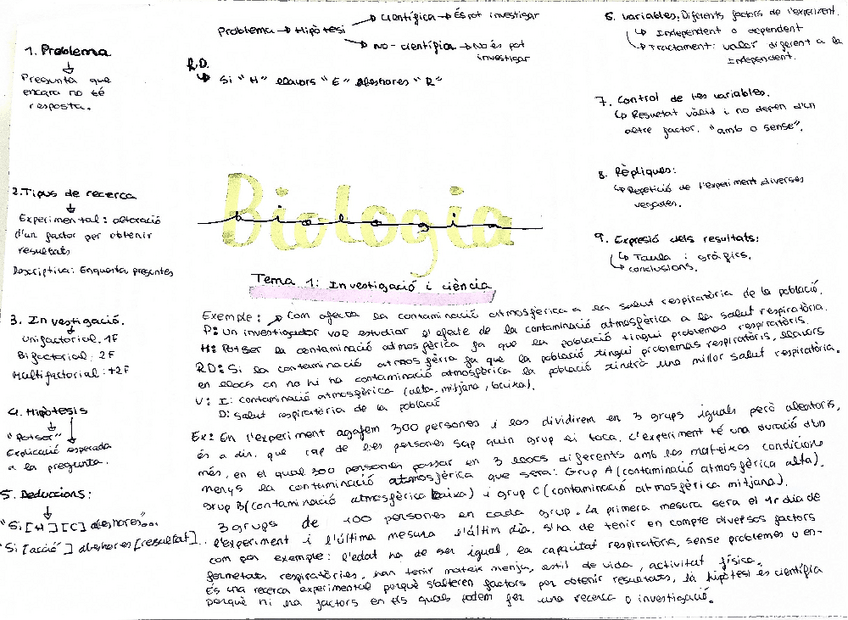 Problema → Hipòtesi
→ Científica → És pot investigar
→ no-científica → No és pot
investigar
R.D.
↳ Si "H" llavors "E" aleshores "R"
1. Problema
↓
Pregunta que
encara no té
resposta.
2. Tipus de recerca
↓
Experimental: alteració
d'un factor per obtenir
resultats
Descriptiva: Enquesta, preguntes
3. Investigació.
Unifactorial: 1F
Bifactorial: 2F
Multifactorial: +2F
4. Hipòtesis
"Potser"
Explicació esperada
a la pregunta.
5. Deduccions:
↓
"Si [H] [C] aleshores"...
"Si [acció] aleshores [resultat]...
6. Variables: Diferents factors de l'experiment.
↳ Independent o dependent
↳ Tractament: valor diferent a la
independent.
7. Control de les variables.
↳ Resultat vàlid i no depèn d'un
altre factor. "amb o sense".
8. Rèpliques:
↳ Repetició de l'experiment diverses
vegades.
9. Expressió dels resultats:
↳ Taula i gràfics,
↳ conclusions.
Biologia
biologia
Tema 1: Investigació i ciència
Exemple: → Com afecta la contaminació atmosfèrica a la salut respiratòria de la població.
P: un investigador vol estudiar l'efecte de la contaminació atmosfèrica a la salut respiratòria.
H: Potser la contaminació atmosfèrica fa que la població tingui problemes respiratòris.
RD: Si la contaminació atmosfèria fa que la població tingui problemes respiratòris, llavors
en llocs on no hi ha contaminació atmosfèrica la població tindrà una millor salut respiratòria.
V: I: contaminació atmosfèrica (alta, mitjana, baixa).
D: salut respiratòria de la població
Ex: En l'experiment agafem 300 persones i les dividirem en 3 grups iguals però aleatoris,
és a dir, que cap de les persones sap quin grup li toca. L'experiment té una duració d'un
més, en el qual 300 persones passar en 3 llocs diferents amb les mateixes condicions
menys la contaminació atmosfèrica que serà: Grup A (contaminació atmosfèrica alta),
grup B (contaminació atmosfèrica baixa) i grup C (contaminació atmosfèrica mitjana).
3 grups de 100 persones en cada grup. La primera mesura serà el 1r dia de
l'experiment i l'última mesura l'últim dia. S'ha de tenir en compte diversos factors
com per exemple: l'edat ha de ser igual, la capacitat respiratòria, sense problemes o en-
fermetats respiratòries, han tenir mateix menjar, estil de vida, activitat física.
És una recerca experimental perquè s'alteren factors per obtenir resultats, la hipòtesi és científica
perquè hi ha factors en els quals podem fer una recerca o investigació.